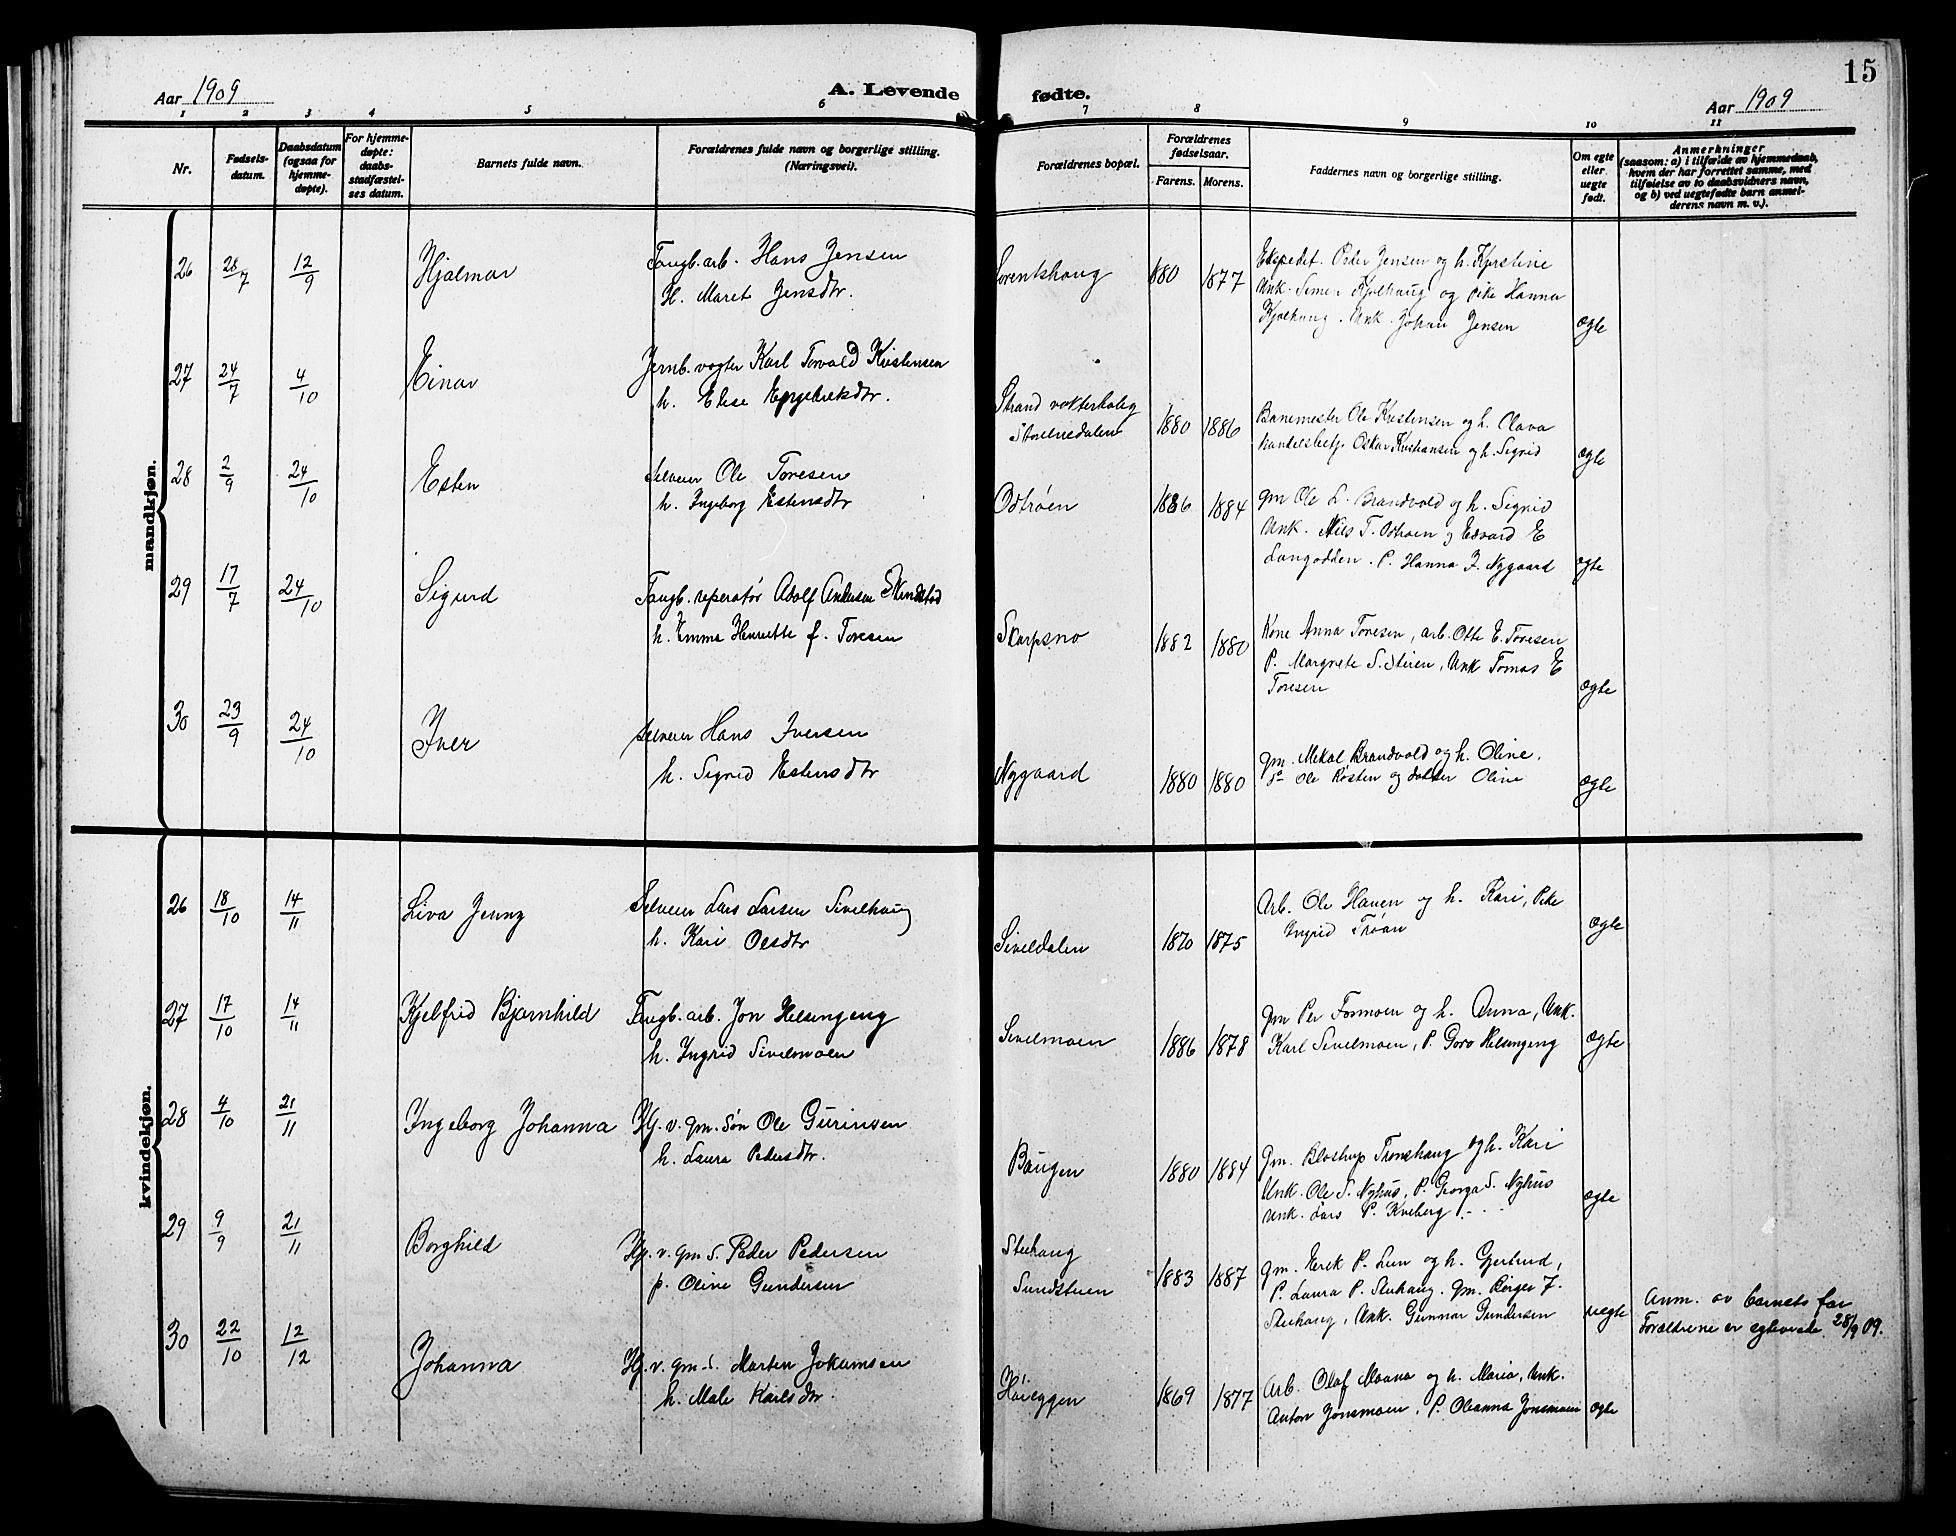 15
Aar 1909
A. Levende fødte.
Aar 1909
1 2 3 4 5 6 7 8 9 10 11
Nr.
Fødsels-
datum.
Daabsdatum
(ogsaa for
hjemme-
døpte).
For hjemme-
døpte:
daabs-
stadfæstel-
ses datum.
Barnets fulde navn.
Forældrenes fulde navn og borgerlige stilling.
(Næringsvei).
Forældrenes bopæl.
Forældrenes
fødselsaar.
Farens. Morens.
Faddernes navn og borgerlige stilling.
Om egte
eller
uegte
født.
Anmerkninger
(saasom: a) i tilfælde av hjemmedaab,
hvem der har forrettet samme, med
tilføielse av to daabsvidners navn,
og b) ved uegtefødte barn anmel-
derens navn m. v.).
mandkjøn.
26 28/7 12/9 Hjalmar
Fangb. arb. Hans Jensen
H. Maret Jensdtr.
880 1877
Ekspedit. Peder Jensen og h. Kjerstine
Unk. Simen Kjølhaug og Pike Hanna
Kjølhaug. Unk. Johan Jensen
ægte
27 24/7 4/10 Einar
Jernb. vogter Karl Torvald Kristensen
h. Elise Engebretsdtr.
Strand vokterbolig
1880 1886
Banemester Ole Kristensen og h. Olava
Handelsbetj. Oskar Kristiansen og h. Sigrid
ægte
28 2/9 24/10 Esten
Selveier Ole Toresen
h. Ingeborg Estensdtr
Odtrøen
1886 1884
gm Ole L. Brandvold og h. Sigrid
Unk. Nils T. Odtrøen og Edvard E
Langodden. P. Hanna J. Nygaard
egte
29 17/7 24/10 Sigurd
Fangb. reperatør Adolf Andersen
h. Emma Henriette f. Toresen
Skarpsno
1882 1880
Kone Anna Toresen, arb. Otto E. Toresen
P. Margrete S. Steien, Unk Tomas E
Toresen
ægte
30 23/9 24/10 Iver
Selveier Hans Iversen
h. Sigrid Estensdtr
Nygaard
1880 1880
gm. Mekal Brandvold og h. Oline.
do Ole Røsten og datter Oline
ægte
kvindekjøn.
26 18/10 14/11 Liva Jenny
Selveier Lars Larsen Sivilhaug
h. Kari Olsdtr
Siveldalen
1870 1875
Arb. Ole Hauen og h. Kari, Pike
Ingrid Trøan
ægte
27 17/10 14/11 Kjelfrid Bjarnhild
Fangb. arb. Jon Helsingeng
h. Ingrid Sivilmoen
Sivilmoen
1886 1878
gm Per Formoen og h. Anna, Unk.
Karl Sivilmoen, P. Goro Helsingeng
ægte
28 4/10 21/11 Ingeborg Johanna
Hj. v. gm. Søn Ole Gurinsen
h. Laura Pedersdtr.
Baugen
1880 1884
gm. Tronshaug og h. Kari
Unk. Ole S. Nyhus, P. Georga S. Nyhus
Unk. Lars P. Kveberg
ægte
29 9/9 21/11 Borghild
Hj. v. gm S. Peder Pedersen
p. Oline Gundersen
Steihaug
Sundsteien
1883 1887
gm. Erek P. Lien og h. Gjertrud,
P. Laura P. Steihaug. gm. Børger J.
Steihaug, Unk. Gunnar Gundersen
uegte
Anm. av barnets far
Forældrene er egteviede 28/9 09.
30 22/10 12/12 Johanna
Hj. v. gm. S. Morten Jokumsen
h. Mali Karlsdtr.
1869 1877
Arb. Olaf Moana og h. Maria, Unk.
Anton Jonsmoen, P. Oleanna Jonsmoen
ægte